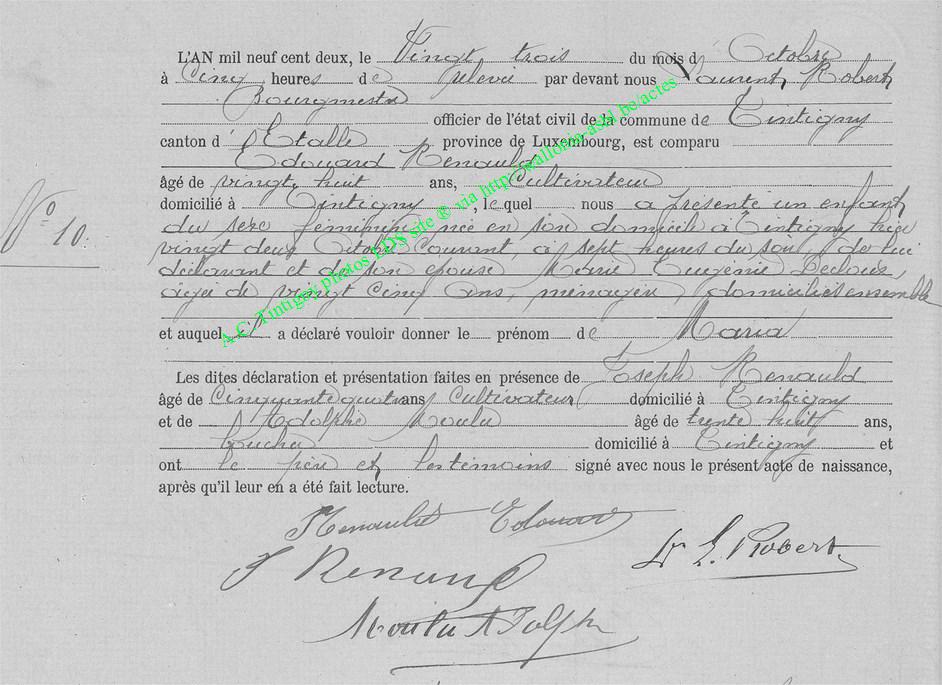 L'AN mil neuf cent deux, le Vingt trois du mois d'Octobre
à Cinq heures de relevée par devant nous Laurent Robert
Bourgmestre
officier de l'état civil de la commune de Tintigny
canton d'Etalle province de Luxembourg, est comparu
Edouard Renauld
âgé de vingt huit ans, Cultivateur
domicilié à Tintigny, lequel nous a présenté un enfant
du sexe féminin né en son domicile à Tintigny
vingt deux Octobre courant, à sept heures du soir, de lui
déclarant et de son épouse Marie Eugénie
âgée de vingt cinq ans, ménagère domiciliés ensemble
N° 10.
et auquel il a déclaré vouloir donner le prénom de Maria
Les dites déclaration et présentation faites en présence de Joseph Renauld
âgé de Cinquante quatre ans Cultivateur domicilié à Tintigny
et de Adolphe Moulu âgé de trente huit ans,
domicilié à Tintigny et
ont le père et les témoins signé avec nous le présent acte de naissance,
après qu'il leur en a été fait lecture.
Renauld Edouard
J Renauld
Lt G. Robert
Moulu Adolphe
A.C. Tintigny photos EDS site ® via http://wallonia-asbl.be/actes